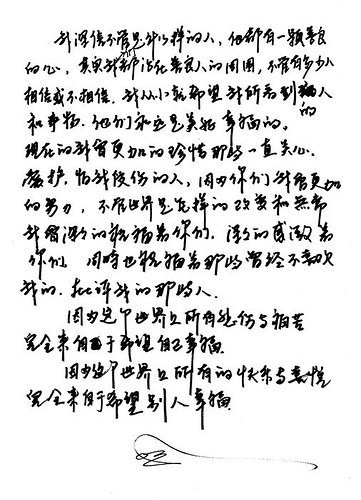 我深信不管是什么样的人，他都有一颗善良
的心，其实我都活在善良人的周围，不管有多少人
相信或不相信，我从小就希望我所看到的人
和事物，他们永远是美好幸福的。
现在的我会更加的珍惜那些一直关心、
爱护、陪我 的人，因为你们我会更加
的努力，不管世界是怎样的改变和无常
我会深深的祝福着你们，深深的感激着
你们，同时也祝福着那些曾经不喜欢
我的、批评我的那些人。
因为这个世界上所有悲伤与痛苦
完全来自于希望自己幸福
因为这个世界上所有的快乐与喜悦
完全来自于希望别人幸福